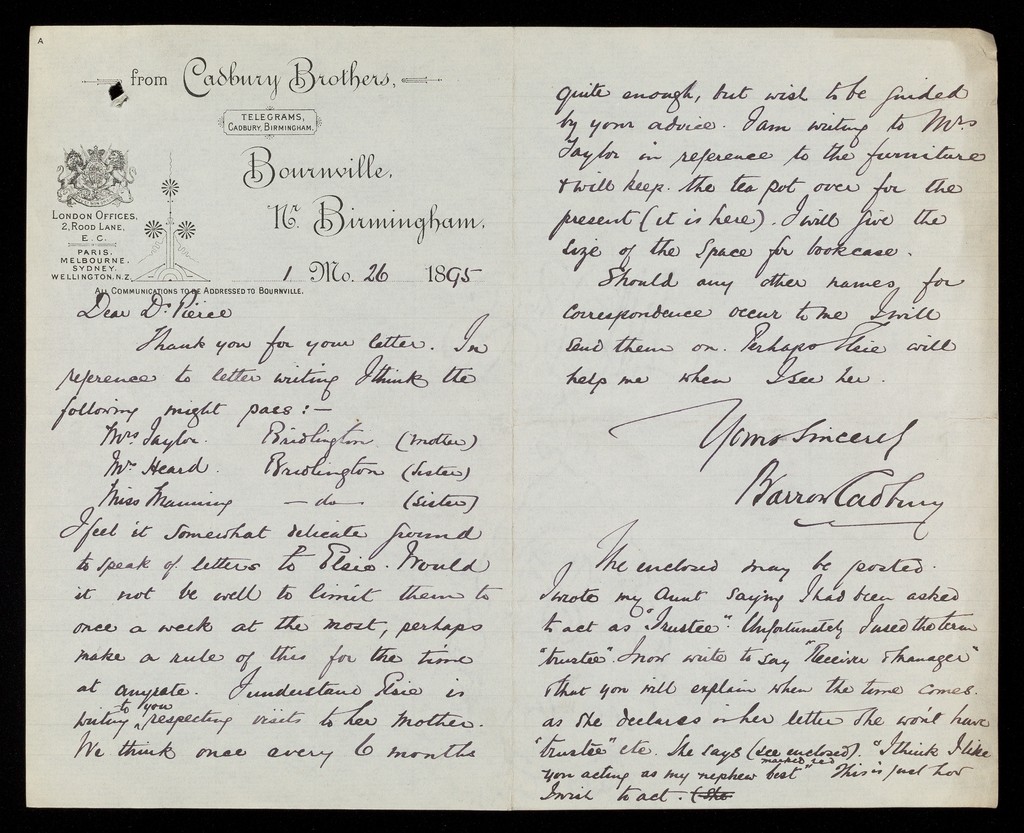 A
from Cadbury Brothers,
TELEGRAMS,
CADBURY, BIRMINGHAM.
Bournville,
Nr. Birmingham.
LONDON OFFICES,
2, ROOD LANE,
E.C.
PARIS,
MELBOURNE,
SYDNEY,
WELLINGTON, N.Z.
1 Mo. 26 1895
ALL COMMUNICATIONS TO BE ADDRESSED TO BOURNVILLE.
Dear Dr Pierce
Thank you for your letter. In
reference to letter writing I think the
following might pass :—
Mrs Taylor. Bridlington (mother)
Mrs Heard. Bridlington (sister)
Miss Manning — do — (sister)
I feel it somewhat delicate ground
to speak of letters to Elsie. Would
it not be well to limit them to
once a week at the most, perhaps
make a rule of this for the time
at anyrate. I understand Elsie is
writing to you respecting visits to her mother.
We think once every 6 months
quite enough, but wish to be guided
by your advice. I am writing to Mrs
Taylor in reference to the furniture
& will keep the tea pot over for the
present (it is here). I will give the
size of the space for bookcase.
Should any other names for
correspondence occur to me I will
send them on. Perhaps Elsie will
help me when I see her.
Yours sincerely
Barrow Cadbury
The enclosed may be posted.
I wrote my Aunt saying I had been asked
to act as "Trustee". Unfortunately I used the term
"trustee". I now write to say "Receiver & manager"
& that you will explain when the time comes.
as she declares in her letter she won't have
"trustee" etc. She says (see enclosed). "I think I like
marked red
you acting as my nephew best" This is just how
I wish to act. (She